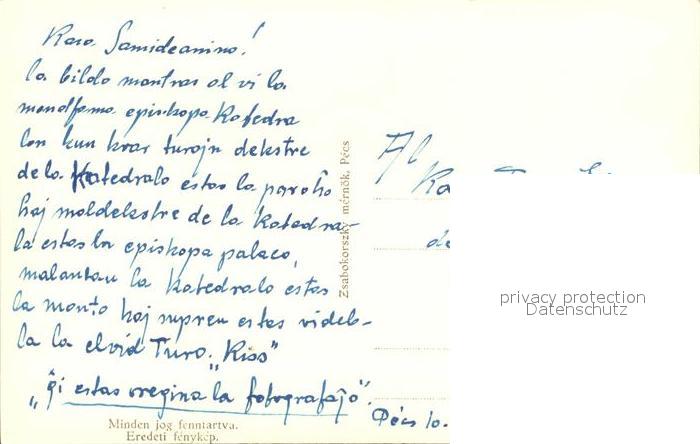 Kara Samideanino!
La bildo montras al vi la
mondfama episkopa Katedra
lon kun kvar turojn dekstre
de la Katedralo estas la paroĥo
kaj maldekstre de la katedra-
la estas la episkopa palaco,
malantau la Katedralo estas
la monto kaj supren estas videb-
la la elvid Turo. "Kiss"
„Ĝi estas oregina la fotografaĵo".
Minden jog fenntartva.
Eredeti fénykép.
Zsabokorszky mérnök, Pécs
Al
Ka
de
Pécs 10.
privacy protection
Datenschutz